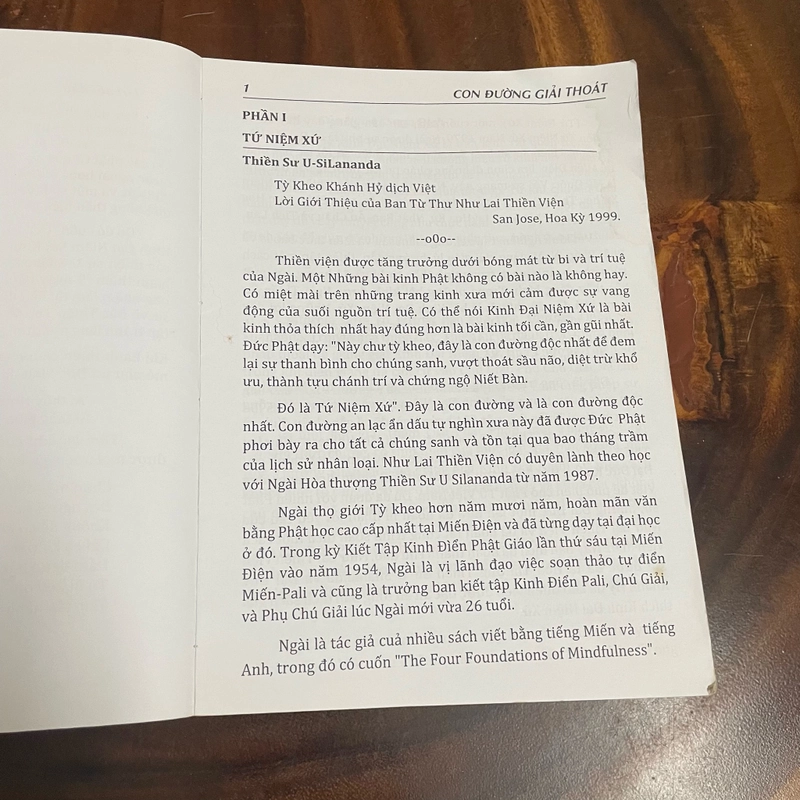 1 CON ĐƯỜNG GIẢI THOÁT
PHẦN I
TỨ NIỆM XỨ
Thiền Sư U-SiLananda
Tỳ Kheo Khánh Hỷ dịch Việt
Lời Giới Thiệu của Ban Từ Thư Như Lai Thiền Viện
San Jose, Hoa Kỳ 1999.
--o0o--
Thiền viện được tăng trưởng dưới bóng mát từ bi và trí tuệ
của Ngài. Một Những bài kinh Phật không có bài nào là không hay.
Có miệt mài trên những trang kinh xưa mới cảm được sự vang
động của suối nguồn trí tuệ. Có thể nói Kinh Đại Niệm Xứ là bài
kinh thỏa thích nhất hay đúng hơn là bài kinh tối cần, gần gũi nhất.
Đức Phật dạy: "Này chư tỳ kheo, đây là con đường độc nhất để đem
lại sự thanh bình cho chúng sanh, vượt thoát sầu não, diệt trừ khổ
ưu, thành tựu chánh trí và chứng ngộ Niết Bàn.
Đó là Tứ Niệm Xứ". Đây là con đường và là con đường độc
nhất. Con đường an lạc ẩn dấu tự nghìn xưa này đã được Đức Phật
phơi bày ra cho tất cả chúng sanh và tồn tại qua bao tháng trầm
của lịch sử nhân loại. Như Lai Thiền Viện có duyên lành theo học
với Ngài Hòa thượng Thiền Sư U Silananda từ năm 1987.
Ngài thọ giới Tỳ kheo hơn năm mươi năm, hoàn mãn văn
bằng Phật học cao cấp nhất tại Miến Điện và đã từng dạy tại đại học
ở đó. Trong kỳ Kiết Tập Kinh Điển Phật Giáo lần thứ sáu tại Miến
Điện vào năm 1954, Ngài là vị lãnh đạo việc soạn thảo tự điển
Miến-Pali và cũng là trưởng ban kiết tập Kinh Điển Pali, Chú Giải,
và Phụ Chú Giải lúc Ngài mới vừa 26 tuổi.
Ngài là tác giả cuả nhiều sách viết bằng tiếng Miến và tiếng
Anh, trong đó có cuốn "The Four Foundations of Mindfulness".